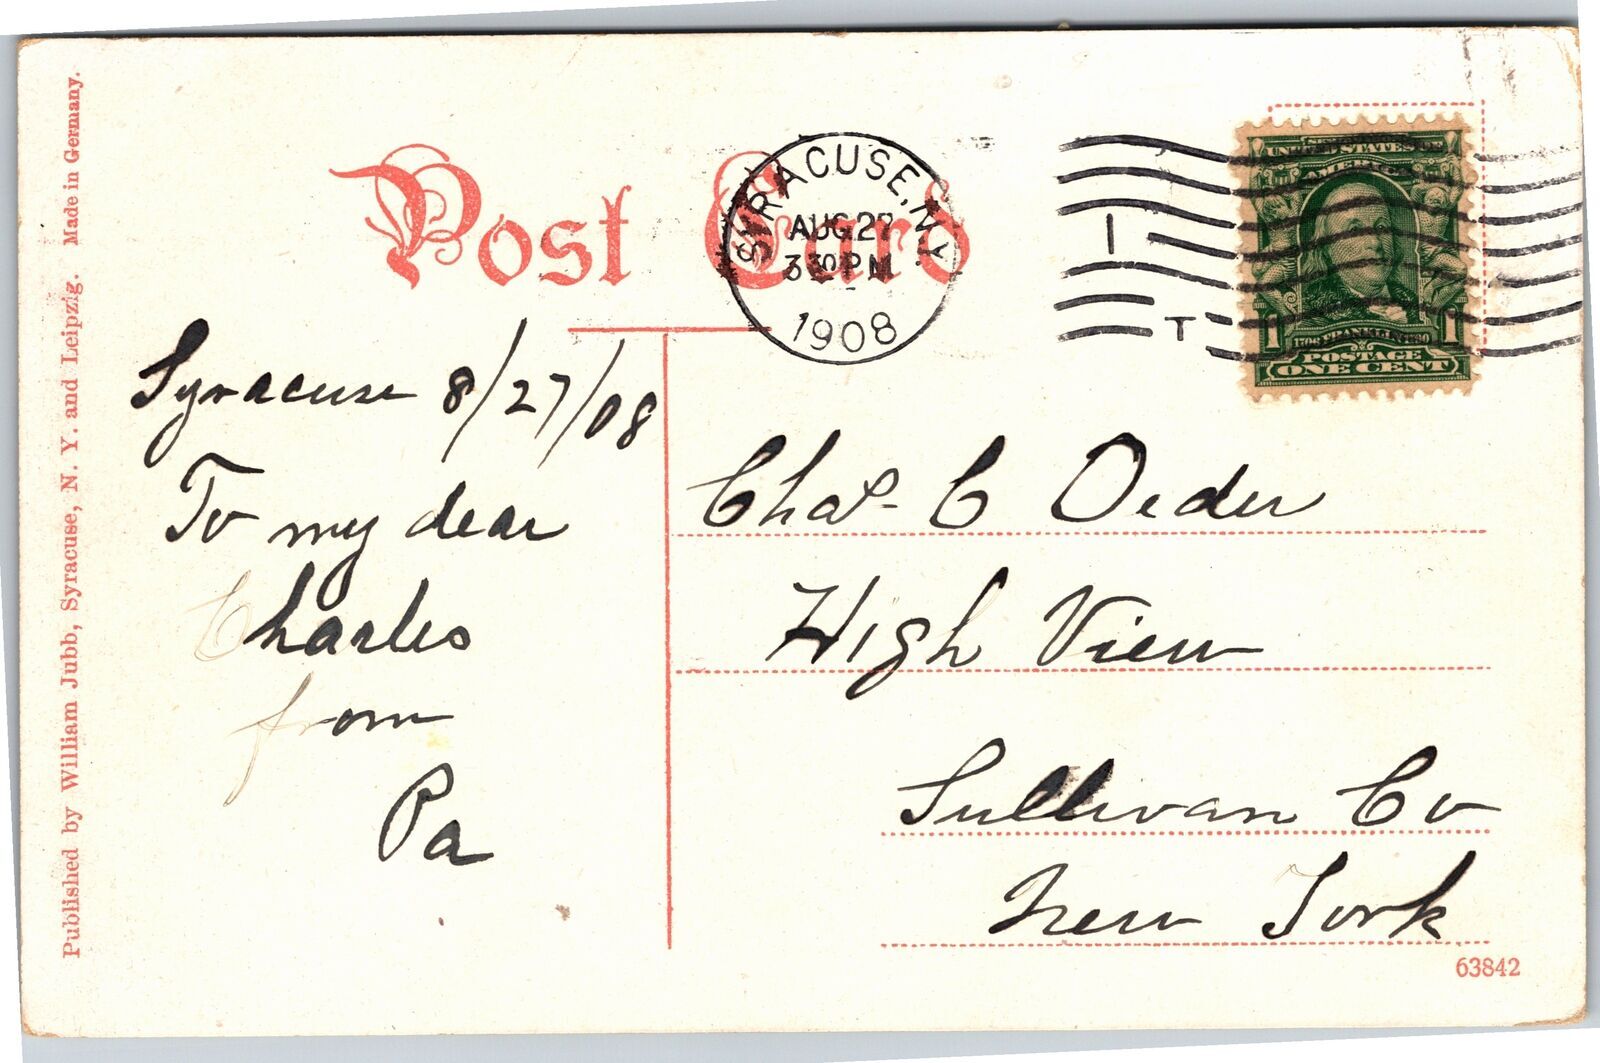 Published by William Jubb, Syracuse, N. Y. and Leipzig. Made in Germany.
Post Card
SYRACUSE, N.Y.
AUG 27
3 30 P M
1908
1
T
SERIES 1902
UNITED STATES OF
AMERICA
1706 FRANKLIN 1790
1 POSTAGE 1
ONE CENT
Syracuse 8/27/08
To my dear
Charles
from
Pa
Chas. C Oeder
High View
Sullivan Co
New York
63842